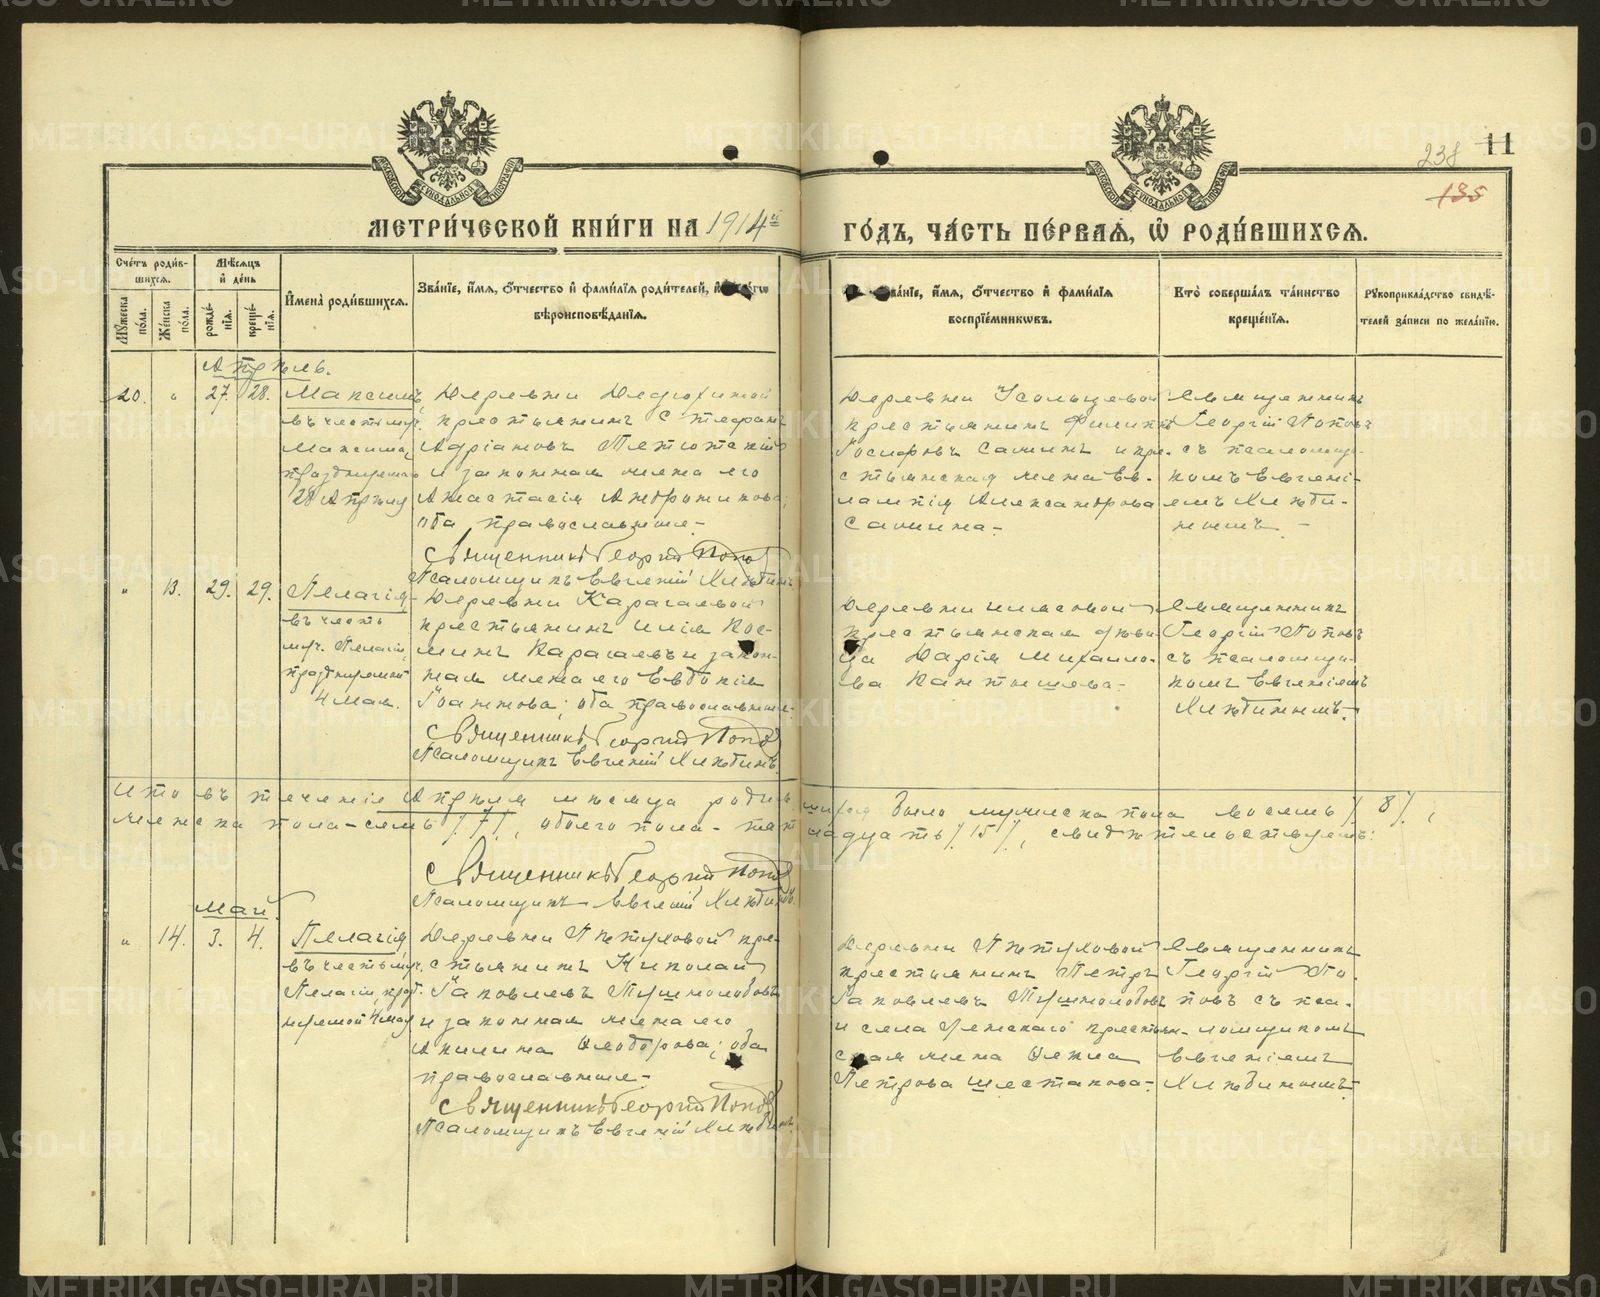 METRIKI.GASO-URAL.RU
238 11
135
МОСКОВСКОЙ СѴНОДАЛЬНОЙ ТИПОГРАФІИ
МОСКОВСКОЙ СѴНОДАЛЬНОЙ ТИПОГРАФІИ
МЕТРИ́ЧЕСКОЙ КНИ́ГИ НА 1914й ГО́ДЪ, ЧА́СТЬ ПЕ́РВАѦ, Ѿ РОДИ́ВШИХСѦ.
Сче́тъ роди́вшихсѧ.
Мꙋ́жеска по́ла.
Же́нска по́ла.
Мѣ́сѧцъ и҆ де́нь
рожде́нїѧ.
креще́нїѧ.
И҆мена̀ роди́вшихсѧ.
Зва́нїе, и҆́мѧ, ѻ҆́тчество и҆ фами́лїѧ роди́телей, и҆
вѣроисповѣ́данїѧ.
Зва́нїе, и҆́мѧ, ѻ҆́тчество и҆ фами́лїѧ
воспрїе́мникѡвъ.
Кто̀ соверша́лъ та́инство
креще́нїѧ.
Рꙋкоприкла́дство свидѣ́телей за́писи по жела́нїю.
Апрѣль.
20. " 27. 28.
Максимъ,
въ честь муч.
Максима,
празднуемаго
28 Апрѣля
Деревни
крестьянинъ Стефанъ
Адріановъ
и законная жена его
Анастасія Андроникова;
оба православные.-
Священникъ Георгій Поповъ
Псаломщикъ Евгеній Хлѣбинъ
Деревни Усольцевой
крестьянинъ Филиппъ
Іосифовъ Санинъ и кре-
стьянская жена Ев-
лампія Александрова
Санина.-
Священникъ
Георгій Поповъ
съ псаломщи-
комъ Евгені-
емъ Хлѣби-
нымъ.-
" 13. 29. 29.
Пелагія,
въ честь
муч. Пелагіи,
празднуемой
4 мая.
Деревни Карагаевой
крестьянинъ Илія Кос-
минъ Карагаевъ и закон-
ная жена его Евдокія
Іоаннова; оба православные.
Священникъ Георгій Поповъ
Псаломщикъ Евгеній Хлѣбинъ.
Деревни
крестьянская дѣви-
ца Дарія Михаило-
ва
Священникъ
Георгій Поповъ
съ псаломщи-
комъ Евгеніемъ
Хлѣбинымъ.-
Итого въ теченіе Апрѣля мѣсяца родившихся было мужеска пола восемь /8/,
женска пола - семь /7/, обоего пола - пятнадцать /15/, свидѣтельствуемъ:
Священникъ Георгій Поповъ
Псаломщикъ Евгеній Хлѣбинъ.
Май.
" 14. 3. 4.
Пелагія,
въ честь муч.
Пелагіи, празд-
нуемой 4 мая
Деревни Пѣтуховой кре-
стьянинъ Николай
Іаковлевъ Тушнолобовъ
и законная жена его
Акилина Ѳеодорова; оба
православные.-
Священникъ Георгій Поповъ
Псаломщикъ Евгеній Хлѣбинъ
Деревни Пѣтуховой
крестьянинъ Петръ
Іаковлевъ Тушнолобовъ
и села крестьян-
ская жена
Петрова Шестакова.-
Священникъ
Георгій По-
повъ съ пса-
ломщикомъ
Евгеніемъ
Хлѣбинымъ.-